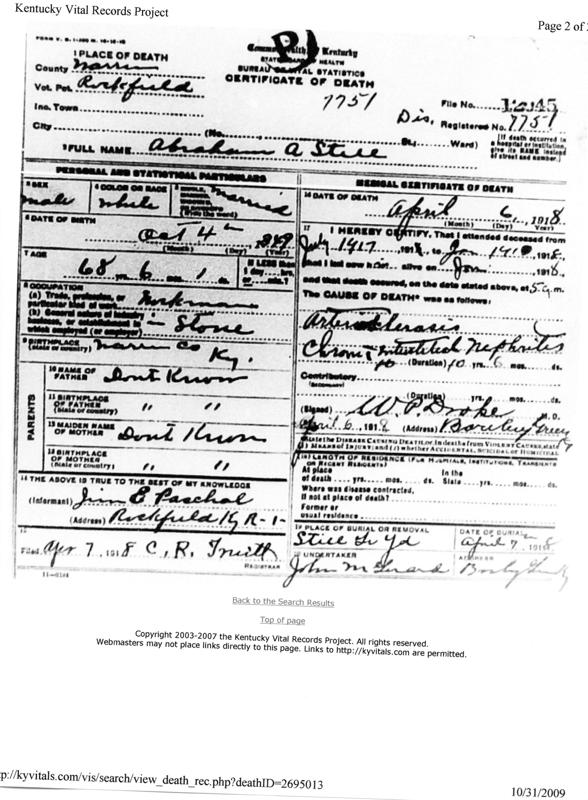 Kentucky Vital Records Project
Page 2 of
1 PLACE OF DEATH
County Warren
Vot. Pct. Rockfield
Inc. Town
City (No. St., Ward)
Commonwealth of Kentucky
STATE BOARD OF HEALTH
BUREAU OF VITAL STATISTICS
CERTIFICATE OF DEATH
7751
File No. 12145
Dis. Registered No. 7751
[If death occurred in a hospital or institution, give its NAME instead of street and number.]
2 FULL NAME Abraham A Still
PERSONAL AND STATISTICAL PARTICULARS
3 SEX male
4 COLOR OR RACE white
5 SINGLE, MARRIED (Write the word) Married
6 DATE OF BIRTH
Oct 4th
(Month) (Day) (Year)
7 AGE
68 yrs. 6 mos. 1 ds.
If LESS than 1 day....hrs. or....min.?
8 OCCUPATION
(a) Trade, profession, or particular kind of work Workman
(b) General nature of industry business, or establishment in which employed (or employer) Stone
9 BIRTHPLACE (State or country) Warren Co Ky.
PARENTS
10 NAME OF FATHER Dont Know
11 BIRTHPLACE OF FATHER (State or country) " "
12 MAIDEN NAME OF MOTHER Dont Know
13 BIRTHPLACE OF MOTHER (State or country) " "
14 THE ABOVE IS TRUE TO THE BEST OF MY KNOWLEDGE
(Informant) Jim E Paschal
(Address) Rockfield Ky R-1-
15
Filed Apr 7, 1918 C, R, Truitt
REGISTRAR
MEDICAL CERTIFICATE OF DEATH
16 DATE OF DEATH
April 6, 1918
(Month) (Day) (Year)
17 I HEREBY CERTIFY, That I attended deceased from
July 1917 to Jan 1918,
that I last saw h alive on Jan 1918,
and that death occurred, on the date stated above, at 5 a.m.
The CAUSE OF DEATH* was as follows:
Arteriosclerosis
Chronic Interstitial Nephritis
(Duration) 10 yrs. 6 mos. ds.
Contributory
(Secondary)
(Duration) yrs. mos. ds.
(Signed) W. P. Drake M. D.
April 6, 1918 (Address) Bowling Green Ky
*State the DISEASE CAUSING DEATH, or, in deaths from VIOLENT CAUSES, state (1) MEANS OF INJURY; and (2) whether ACCIDENTAL, SUICIDAL or HOMICIDAL
18 LENGTH OF RESIDENCE (FOR HOSPITALS, INSTITUTIONS, TRANSIENTS OR RECENT RESIDENTS)
At place of death yrs. mos. ds. In the State yrs. mos. ds.
Where was disease contracted,
if not at place of death?
Former or
usual residence
19 PLACE OF BURIAL OR REMOVAL
Still Gr Yd
DATE OF BURIAL
April 7th 1918
20 UNDERTAKER
John M Gerard
ADDRESS
Back to the Search Results
Top of page
Copyright 2003-2007 the Kentucky Vital Records Project. All rights reserved.
Webmasters may not place links directly to this page. Links to http://kyvitals.com are permitted.
p://kyvitals.com/vis/search/view_death_rec.php?deathID=2695013
10/31/2009